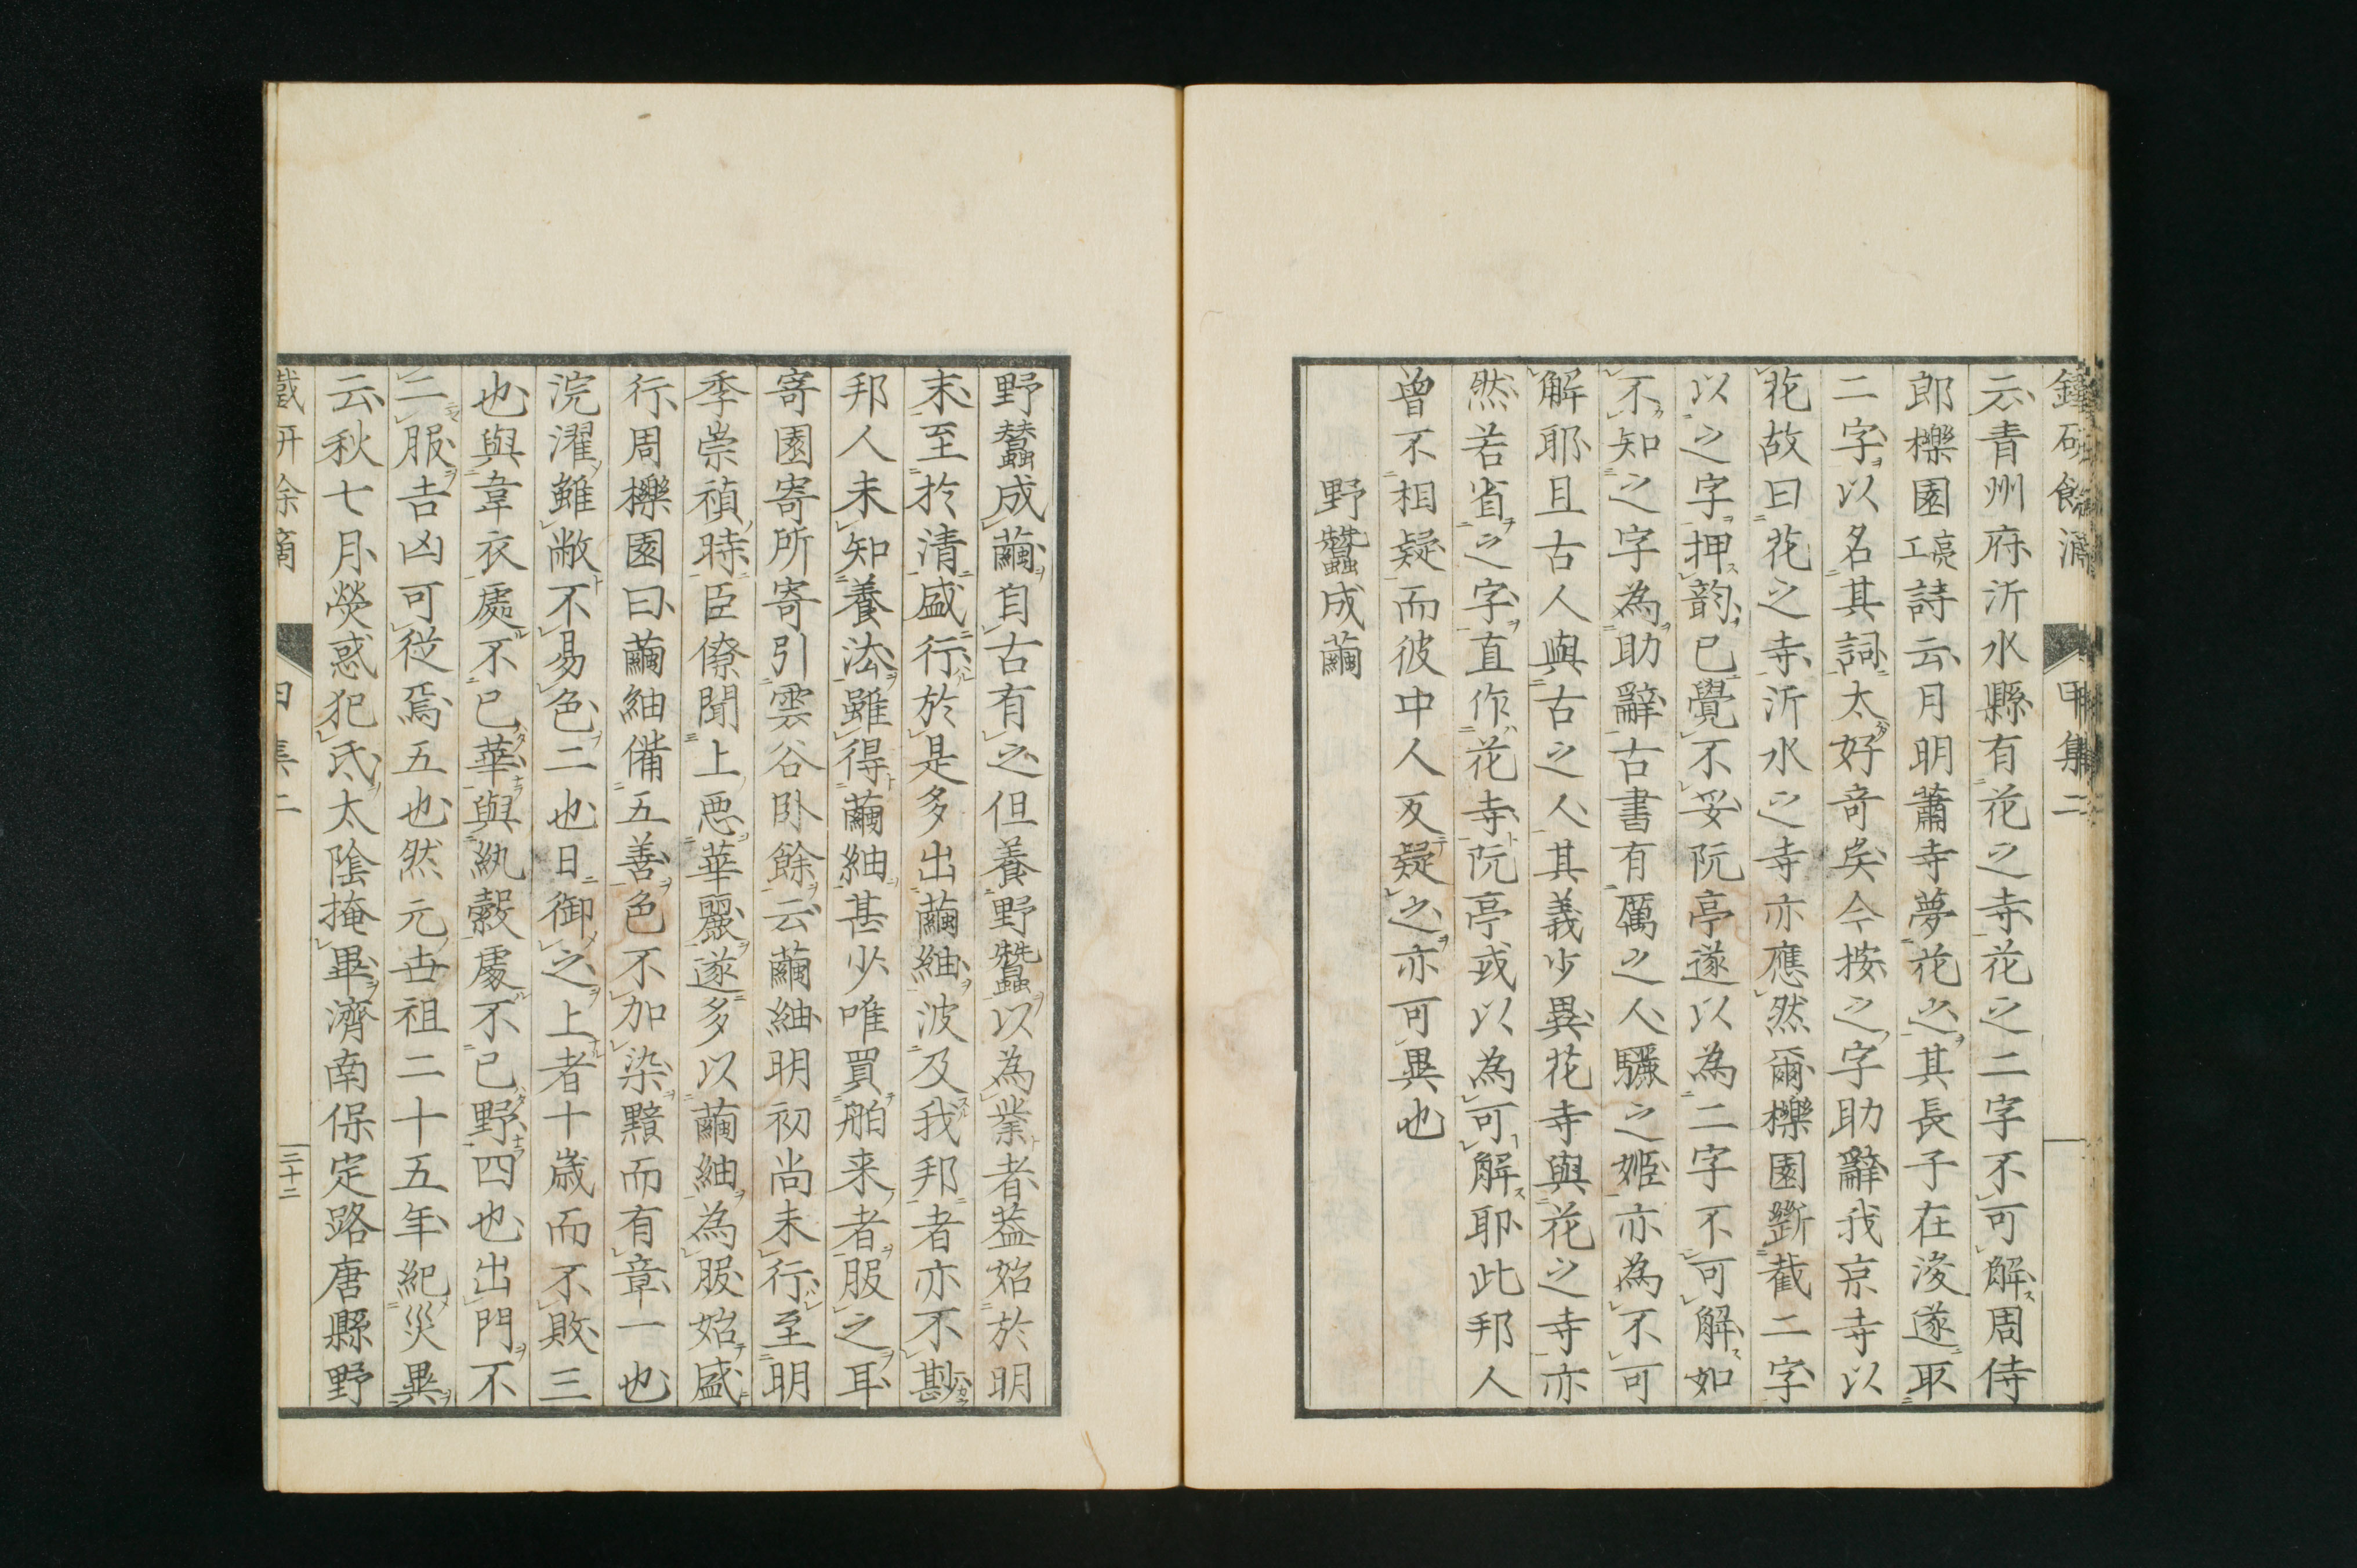 鐵研餘滴
甲集二
云青州府沂水縣有花之寺花之二字不可解周侍
郎櫟園亮工詩云月明蕭寺夢花之其長子在浚遂取
二字以名其詞太好奇矣今按之字助辭我京寺以
花故曰花之寺沂水之寺亦應然爾櫟園斷截二字
以之字押韵已覺不妥阮亭遂以為二字不可解如
不知之字為助辭古書有厲之人驪之姬亦為不可
解耶且古人與古之人其義少異花寺與花之寺亦
然若省之字直作花寺阮亭或以為可解耶此邦人
曾不相疑而彼中人反疑之亦可異也
野蠶成繭
野蠶成繭自古有之但養野蠶以為業者葢始於明
末至於清盛行於是多出繭紬波及我邦者亦不尠
邦人未知養法雖得繭紬甚少唯買舶来者服之耳
寄園寄所寄引雲谷卧餘云繭紬明初尚未行至明
季崇禎時臣僚聞上惡華麗遂多以繭紬為服始盛
行周櫟園曰繭紬備五善色不加染黯而有章一也
浣濯雖敝不易色二也日御之上者十歳而不敗三
也與韋衣處不已華與紈縠處不已野四也出門不
二服吉凶可從焉五也然元世祖二十五年紀災異
云秋七月熒惑犯氐太陰掩畢濟南保定路唐縣野
鐵研余滴
甲集二
三十二